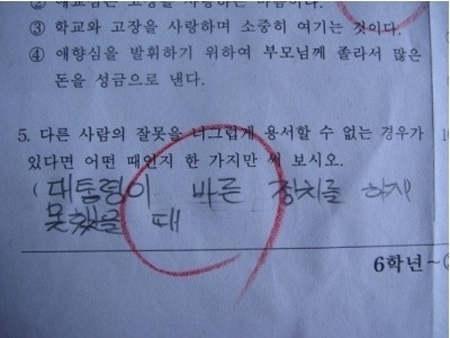 ② 애교심은 고장을 사랑하는 마음이다.
③ 학교와 고장을 사랑하며 소중히 여기는 것이다.
④ 애향심을 발휘하기 위하여 부모님께 졸라서 많은
돈을 성금으로 낸다.
5. 다른 사람의 잘못을 너그럽게 용서할 수 없는 경우가
있다면 어떤 때인지 한 가지만 써 보시오.
( 대통령이 바른 정치를 하지
못했을 때
6학년~